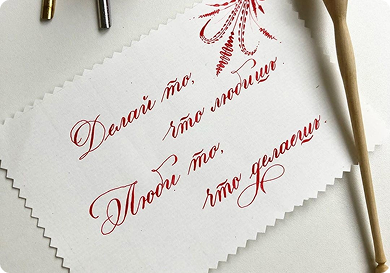 Делай то,
что любишь.
Люби то,
что делаешь.